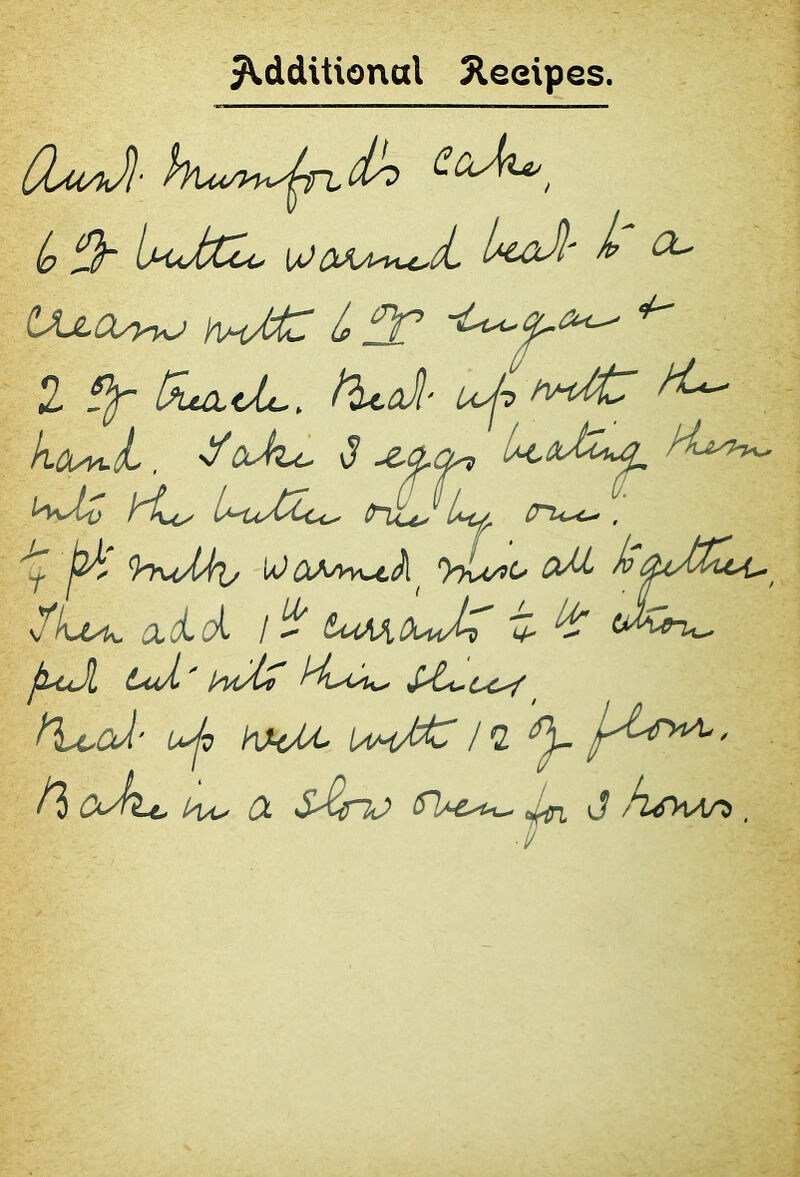 Additional Recipes.
Aunt Mumford's cake,
6 oz butter warmed beat to a
cream with 6 oz sugar +
2 oz treacle. Beat up with the
hand. Take 3 eggs beating them
into the butter one by one.
¼ pt milk warmed, mix all together,
Then add 1 lb currants ¼ lb citron
peel cut into thin slices,
Beat up well with 12 oz flour.
Bake in a slow oven for 3 hours.